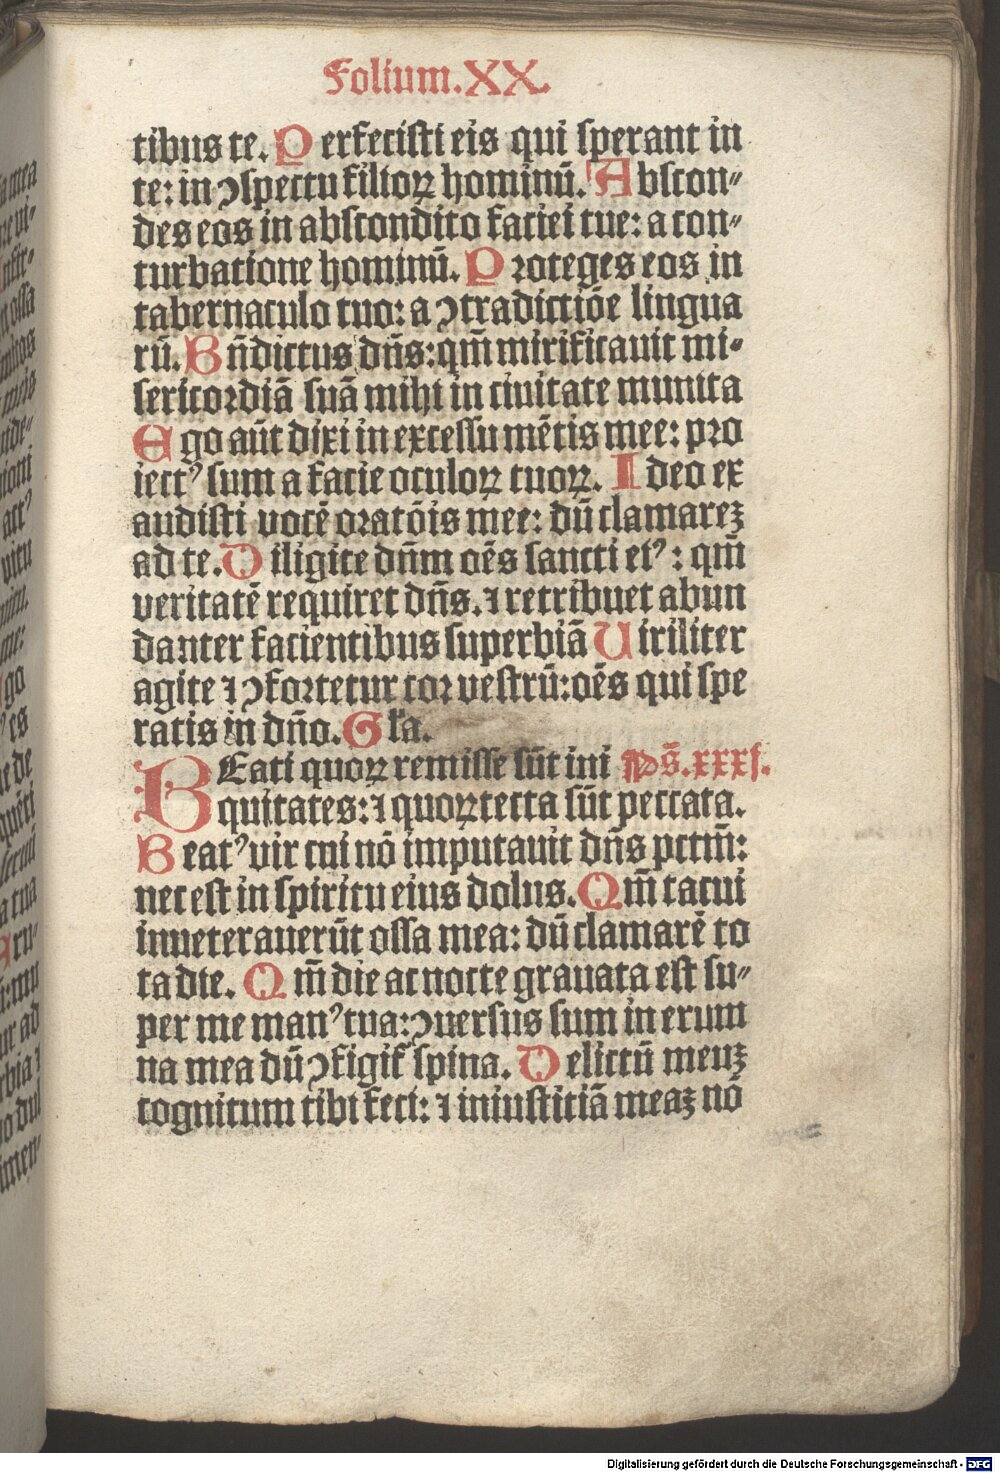 Folium.XX.
tibus te. Perfecisti eis qui sperant in
te: in ꝯspectu filioꝝ hominū. Abscon⸗
des eos in abscondito faciei tue: a con⸗
turbatione hominū. Proteges eos in
tabernaculo tuo: a ꝯtradictiōe lingua
rū. Bn̄dictus dn̄s: qm̄ mirificauit mi⸗
sericordiā suā mihi in ciuitate munita
Ego aūt dixi in excessu mētis mee: pro
iectꝰ sum a facie oculoꝝ tuoꝝ. Ideo ex
audisti vocē oratōis mee: dū clamareꝫ
ad te. Diligite dn̄m oēs sancti eiꝰ: qm̄
veritatē requiret dn̄s. ⁊ retribuet abun
danter facientibus superbiā Uiriliter
agite ⁊ ꝯfortetur cor vestrū: oēs qui spe
ratis in dn̄o. Gl'a.
BEati quoꝝ remisse sūt ini Ps̄.xxxj.
quitates: ⁊ quoꝝ tecta sūt peccata.
Beatꝰ vir cui nō imputauit dn̄s pctm̄:
nec est in spiritu eius dolus. Qm̄ tacui
inueterauerūt ossa mea: dū clamarē to
ta die. Qm̄ die ac nocte grauata est su⸗
per me manꝰ tua: ꝯuersus sum in erum
na mea dū ꝯfigit' spina. Delictū meuꝫ
cognitum tibi feci: ⁊ iniustitiā meaꝫ nō
Digitalisierung gefördert durch die Deutsche Forschungsgemeinschaft - DFG